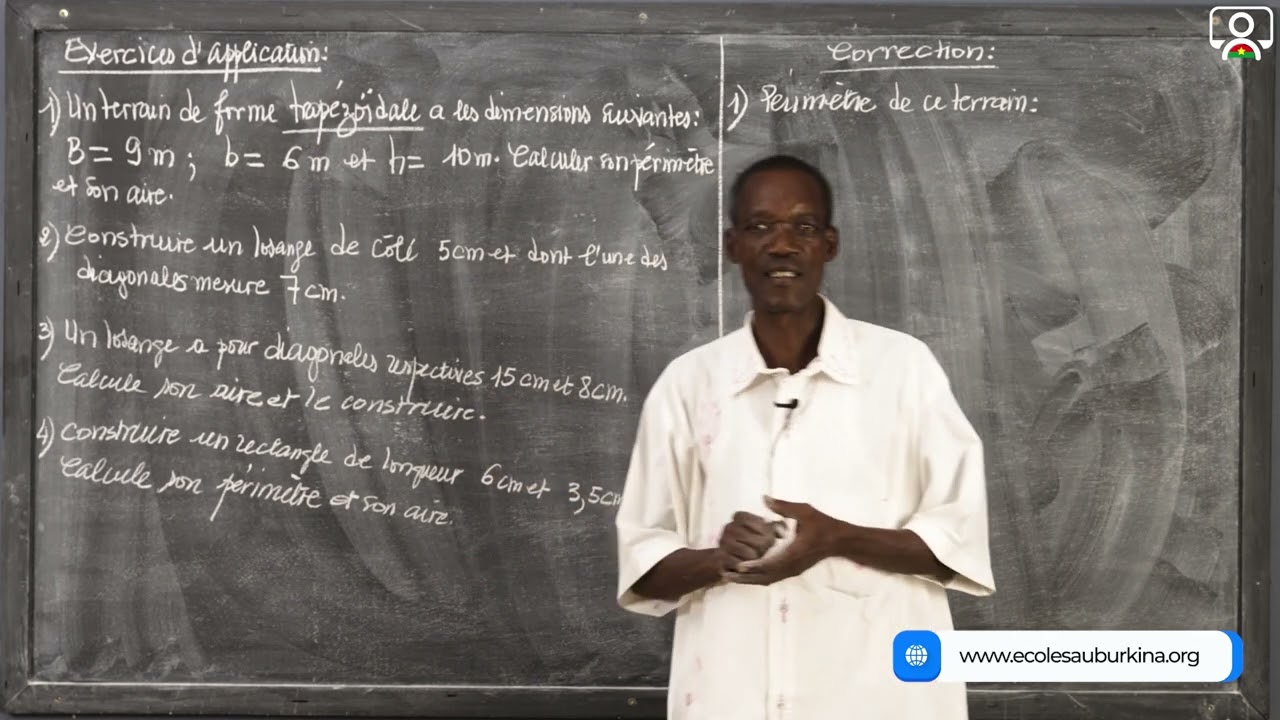 Exercices d'application:
1) Un terrain de forme trapézoïdale a les dimensions suivantes:
B = 9 m ; b = 6 m et h = 10 m. Calculer son périmètre
et son aire.
2) Construire un losange de côté 5 cm et dont l'une des
diagonales mesure 7 cm.
3) Un losange a pour diagonales respectives 15 cm et 8 cm.
Calcule son aire et le construire.
4) Construire un rectangle de longueur 6 cm et 3,5 cm
Calcule son périmètre et son aire.
Correction:
1) Périmètre de ce terrain:
www.ecolesauburkina.org